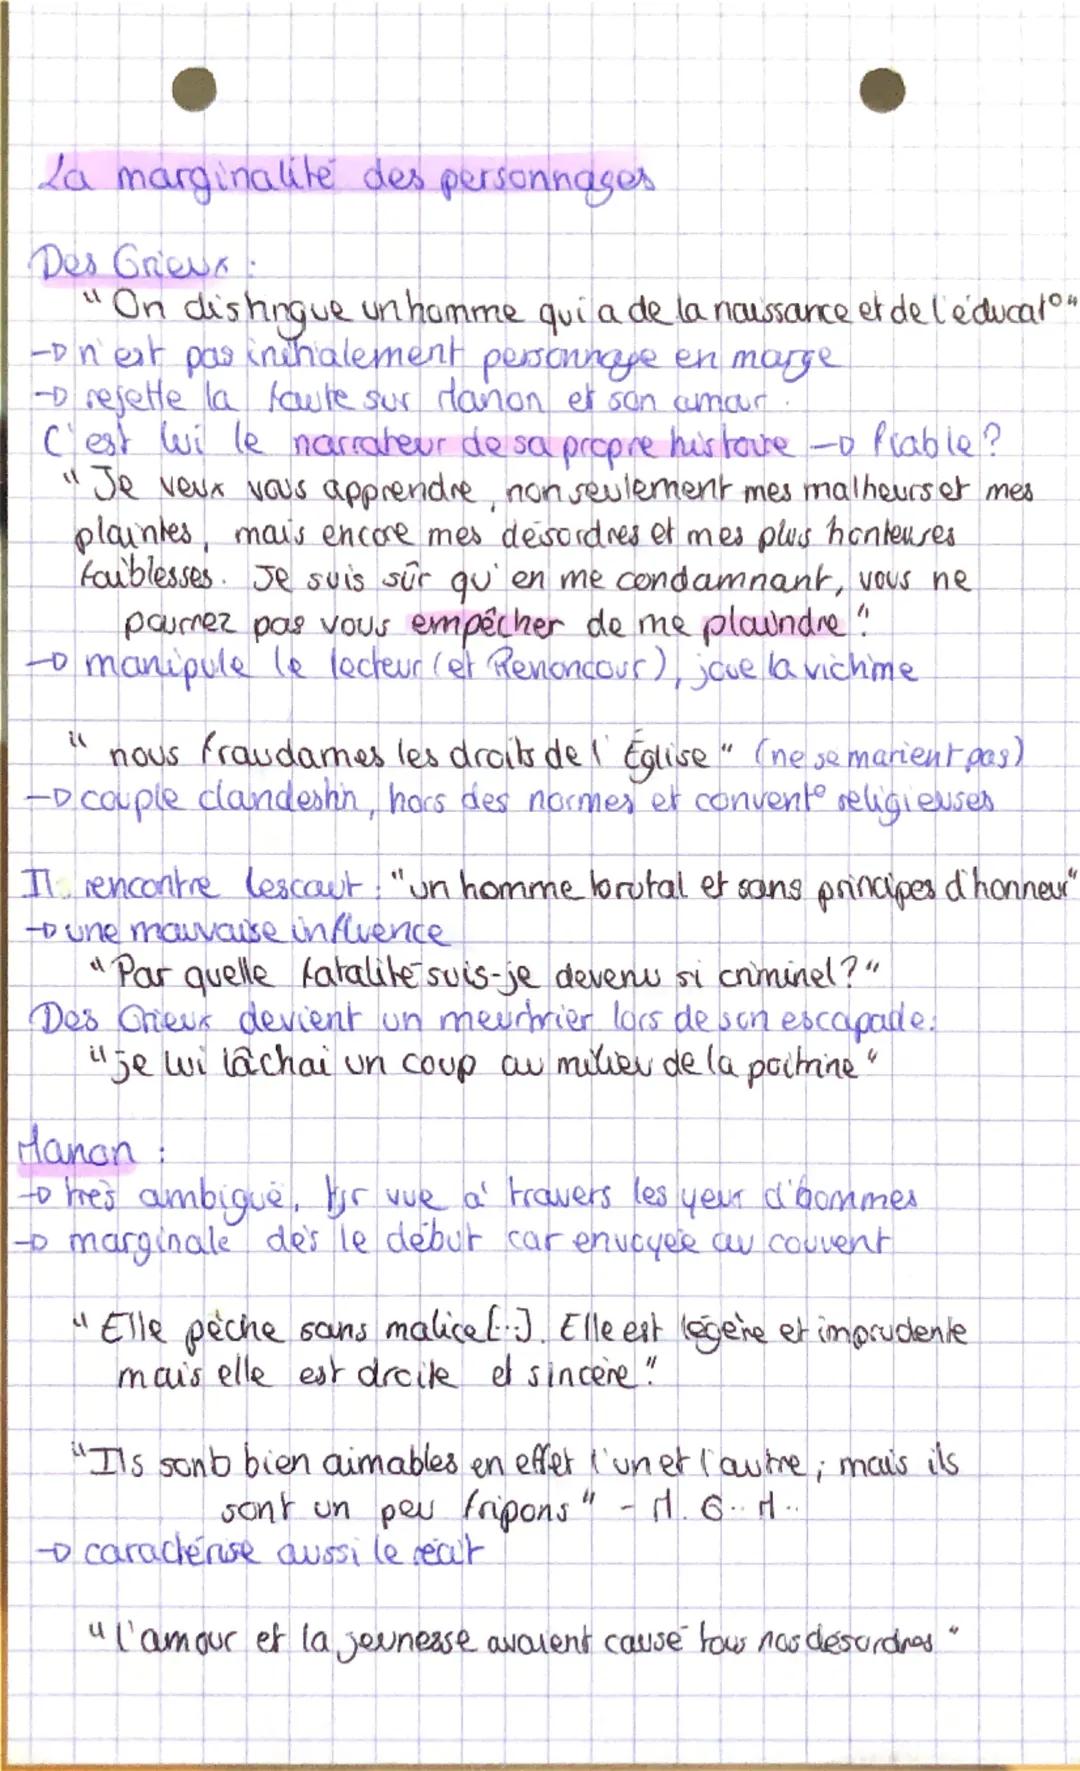 La marginalité des personnages
Des Grieux :
"On distingue un homme qui a de la naissance et de l'éducat°"
→ n'est pas initialement personnage en marge
→ rejette la faute sur Manon et son amour.
C'est lui le narrateur de sa propre histoire → fiable ?
"Je veux vous apprendre, non seulement mes malheurs et mes
plaintes, mais encore mes désordres et mes plus honteuses
faiblesses. Je suis sûr qu'en me condamnant, vous ne
pourrez pas vous empêcher de me plaindre".
→ manipule le lecteur (et Renoncour), joue la victime
"nous fraudames les droits de l'Église" (ne se marient pas)
→ couple clandestin, hors des normes et convent° religieuses
Il rencontre Lescaut : "un homme brutal et sans principes d'honneur"
→ une mauvaise influence
"Par quelle fatalité suis-je devenu si criminel ?"
Des Grieux devient un meurtrier lors de son escapade :
"je lui lâchai un coup au milieu de la poitrine"
Manon :
→ très ambiguë, tjr vue à travers les yeux d'hommes
→ marginale dès le début car envoyée au couvent
"Elle pèche sans malice [...]. Elle est légère et imprudente
mais elle est droite et sincère".
"Ils sont bien aimables en effet l'un et l'autre ; mais ils
sont un peu fripons" - M. G.. M..
→ caractérise aussi le récit
"l'amour et la jeunesse avaient causé tous nos désordres"